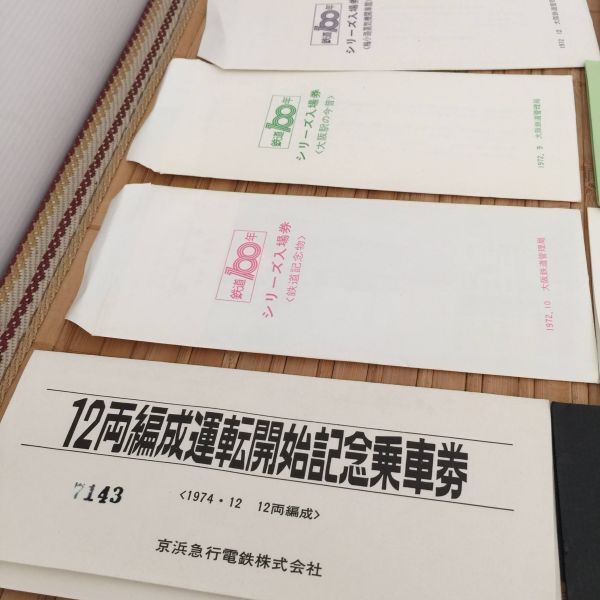 鉄道100年
シリーズ入場券
1972.12 大阪鉄道管理局
鉄道100年
シリーズ入場券
〈大阪駅の今昔〉
1972.9 大阪鉄道管理局
鉄道100年
シリーズ入場券
〈鉄道記念物〉
1972.10 大阪鉄道管理局
12両編成運転開始記念乗車券
7143
<1974・12 12両編成>
京浜急行電鉄株式会社